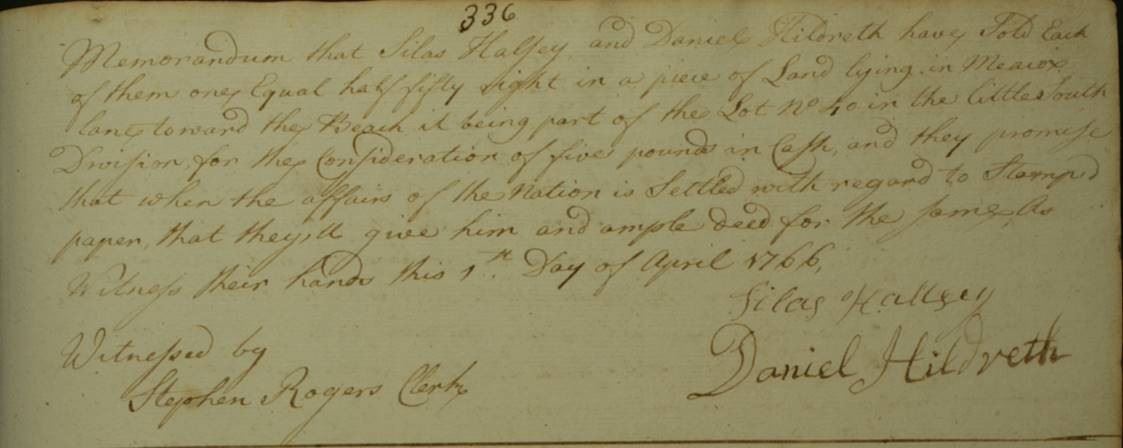 336
Memorandum that Silas Halsey, and Daniel Hildreth have Sold Each
of them one Equal half fifty right in a piece of Land lying in Meacox
lane toward the Beach it being part of the Lot No 40 in the little South
Division, for the Consideration of five pounds in Cash, and they promise
that when the affairs of the Nation is Settled with regard to Stamp'd
paper, that they,ll give him and ample deed for the same, As
Witness their hands this 1st. Day of April 1766,
Silas Hallsey
Daniel Hildreth
Witnessed by
Stephen Rogers Clerk